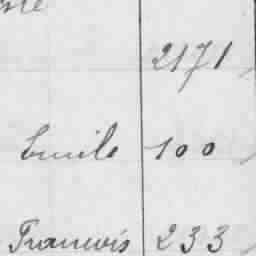 2171
Emile 100
Francois 233